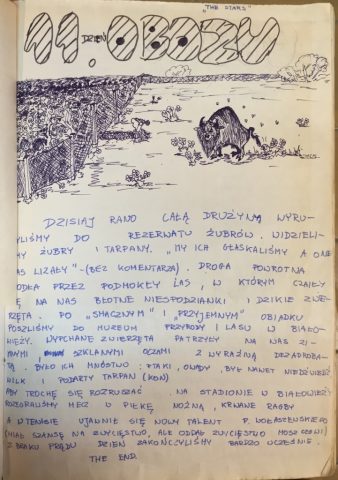 "THE STARS"
11. DZIEŃ OBOZU
DZISIAJ RANO CAŁĄ DRUŻYNĄ WYRU-
YLIŚMY DO REZERWATU ŻUBRÓW. WIDZIELI-
MY ŻUBRY I TARPANY. "MY ICH GŁASKALIŚMY A ONE
AS LIZAŁY" - (BEZ KOMENTARZA). DROGA POWROTNA
ODŁA PRZEZ PODMOKŁY LAS, W KTÓRYM CZAIŁY
Ę NA NAS BŁOTNE NIESPODZIANKI I DZIKIE ZWIE-
RZĘTA. PO "SMACZNYM" I "PRZYJEMNYM" OBIADKU
POSZLIŚMY DO MUZEUM PRZYRODY I LASU W BIAŁO-
IEŻY. WYPCHANE ZWIERZĘTA PATRZYŁY NA NAS ZI-
MNYMI, SZKLANYMI OCZAMI Z WYRAŹNĄ DEZAPROBA-
TĄ. BYŁO ICH MNÓSTWO: PTAKI, OWADY, BYŁ NAWET NIEDŹWIEDŹ
WILK I PODARTY TARPAN (KOŃ)
ABY TROCHĘ SIĘ ROZRUSZAĆ NA STADIONIE W BIAŁOWIEŻY
ROZEGRALIŚMY MECZ W PIŁKĘ NOŻNĄ, KRWAWE RAGBY
A W TENISIE UJAWNIŁ SIĘ NOWY TALENT P.
(MIAŁ SZANSĘ NA ZWYCIĘSTWO, ALE ODDAŁ ZWYCIĘSTWO
Z BRAKU PRĄDU DZIEŃ ZAKOŃCZYLIŚMY BARDZO WCZEŚNIE.
THE END.